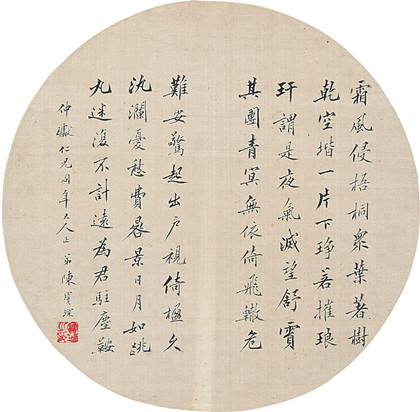 霜風侵梧桐衆葉著樹
乾空堦一片下琤若摧琅
玕謂是夜氣滅望舒霣
其團青冥無依倚飛轍危
難安驚起出戶視倚楹久
汍瀾憂愁費晷景日月如跳
丸迷復不計遠為君駐塵鞍
仲仁兄同年大人正 弟陳